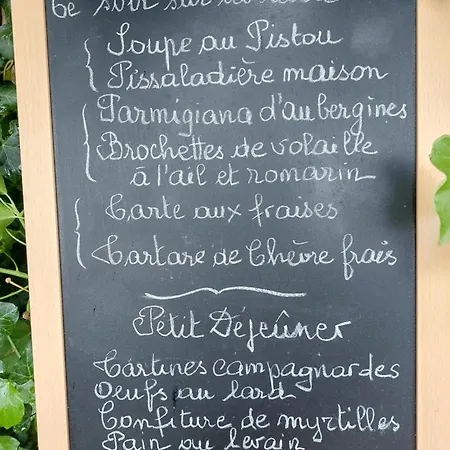 soir sur
Soupe au Pistou
Pissaladière maison
Parmigiana d'aubergines
Brochettes de volaille
à l'ail et romarin
Tarte aux fraises
Tartare de Chèvre frais
Petit Déjeûner
Tartines campagnardes
Oeufs au lard
Confiture de myrtilles
Pain au levain